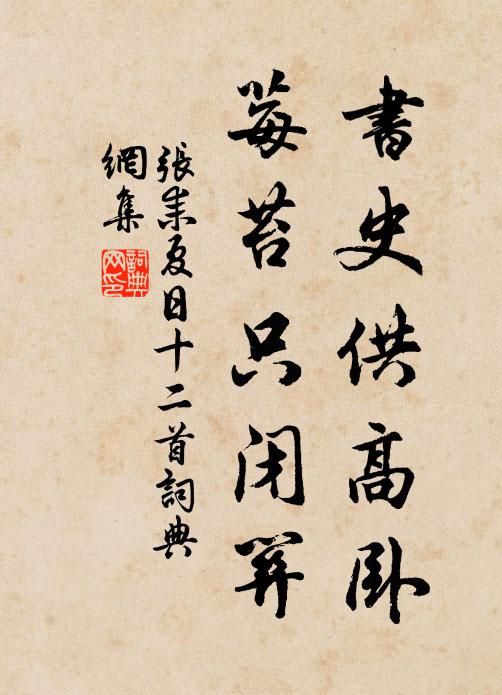 書史供高臥
莓苔只閉關
張耒夏日十二首詞典
網集
詞典網印